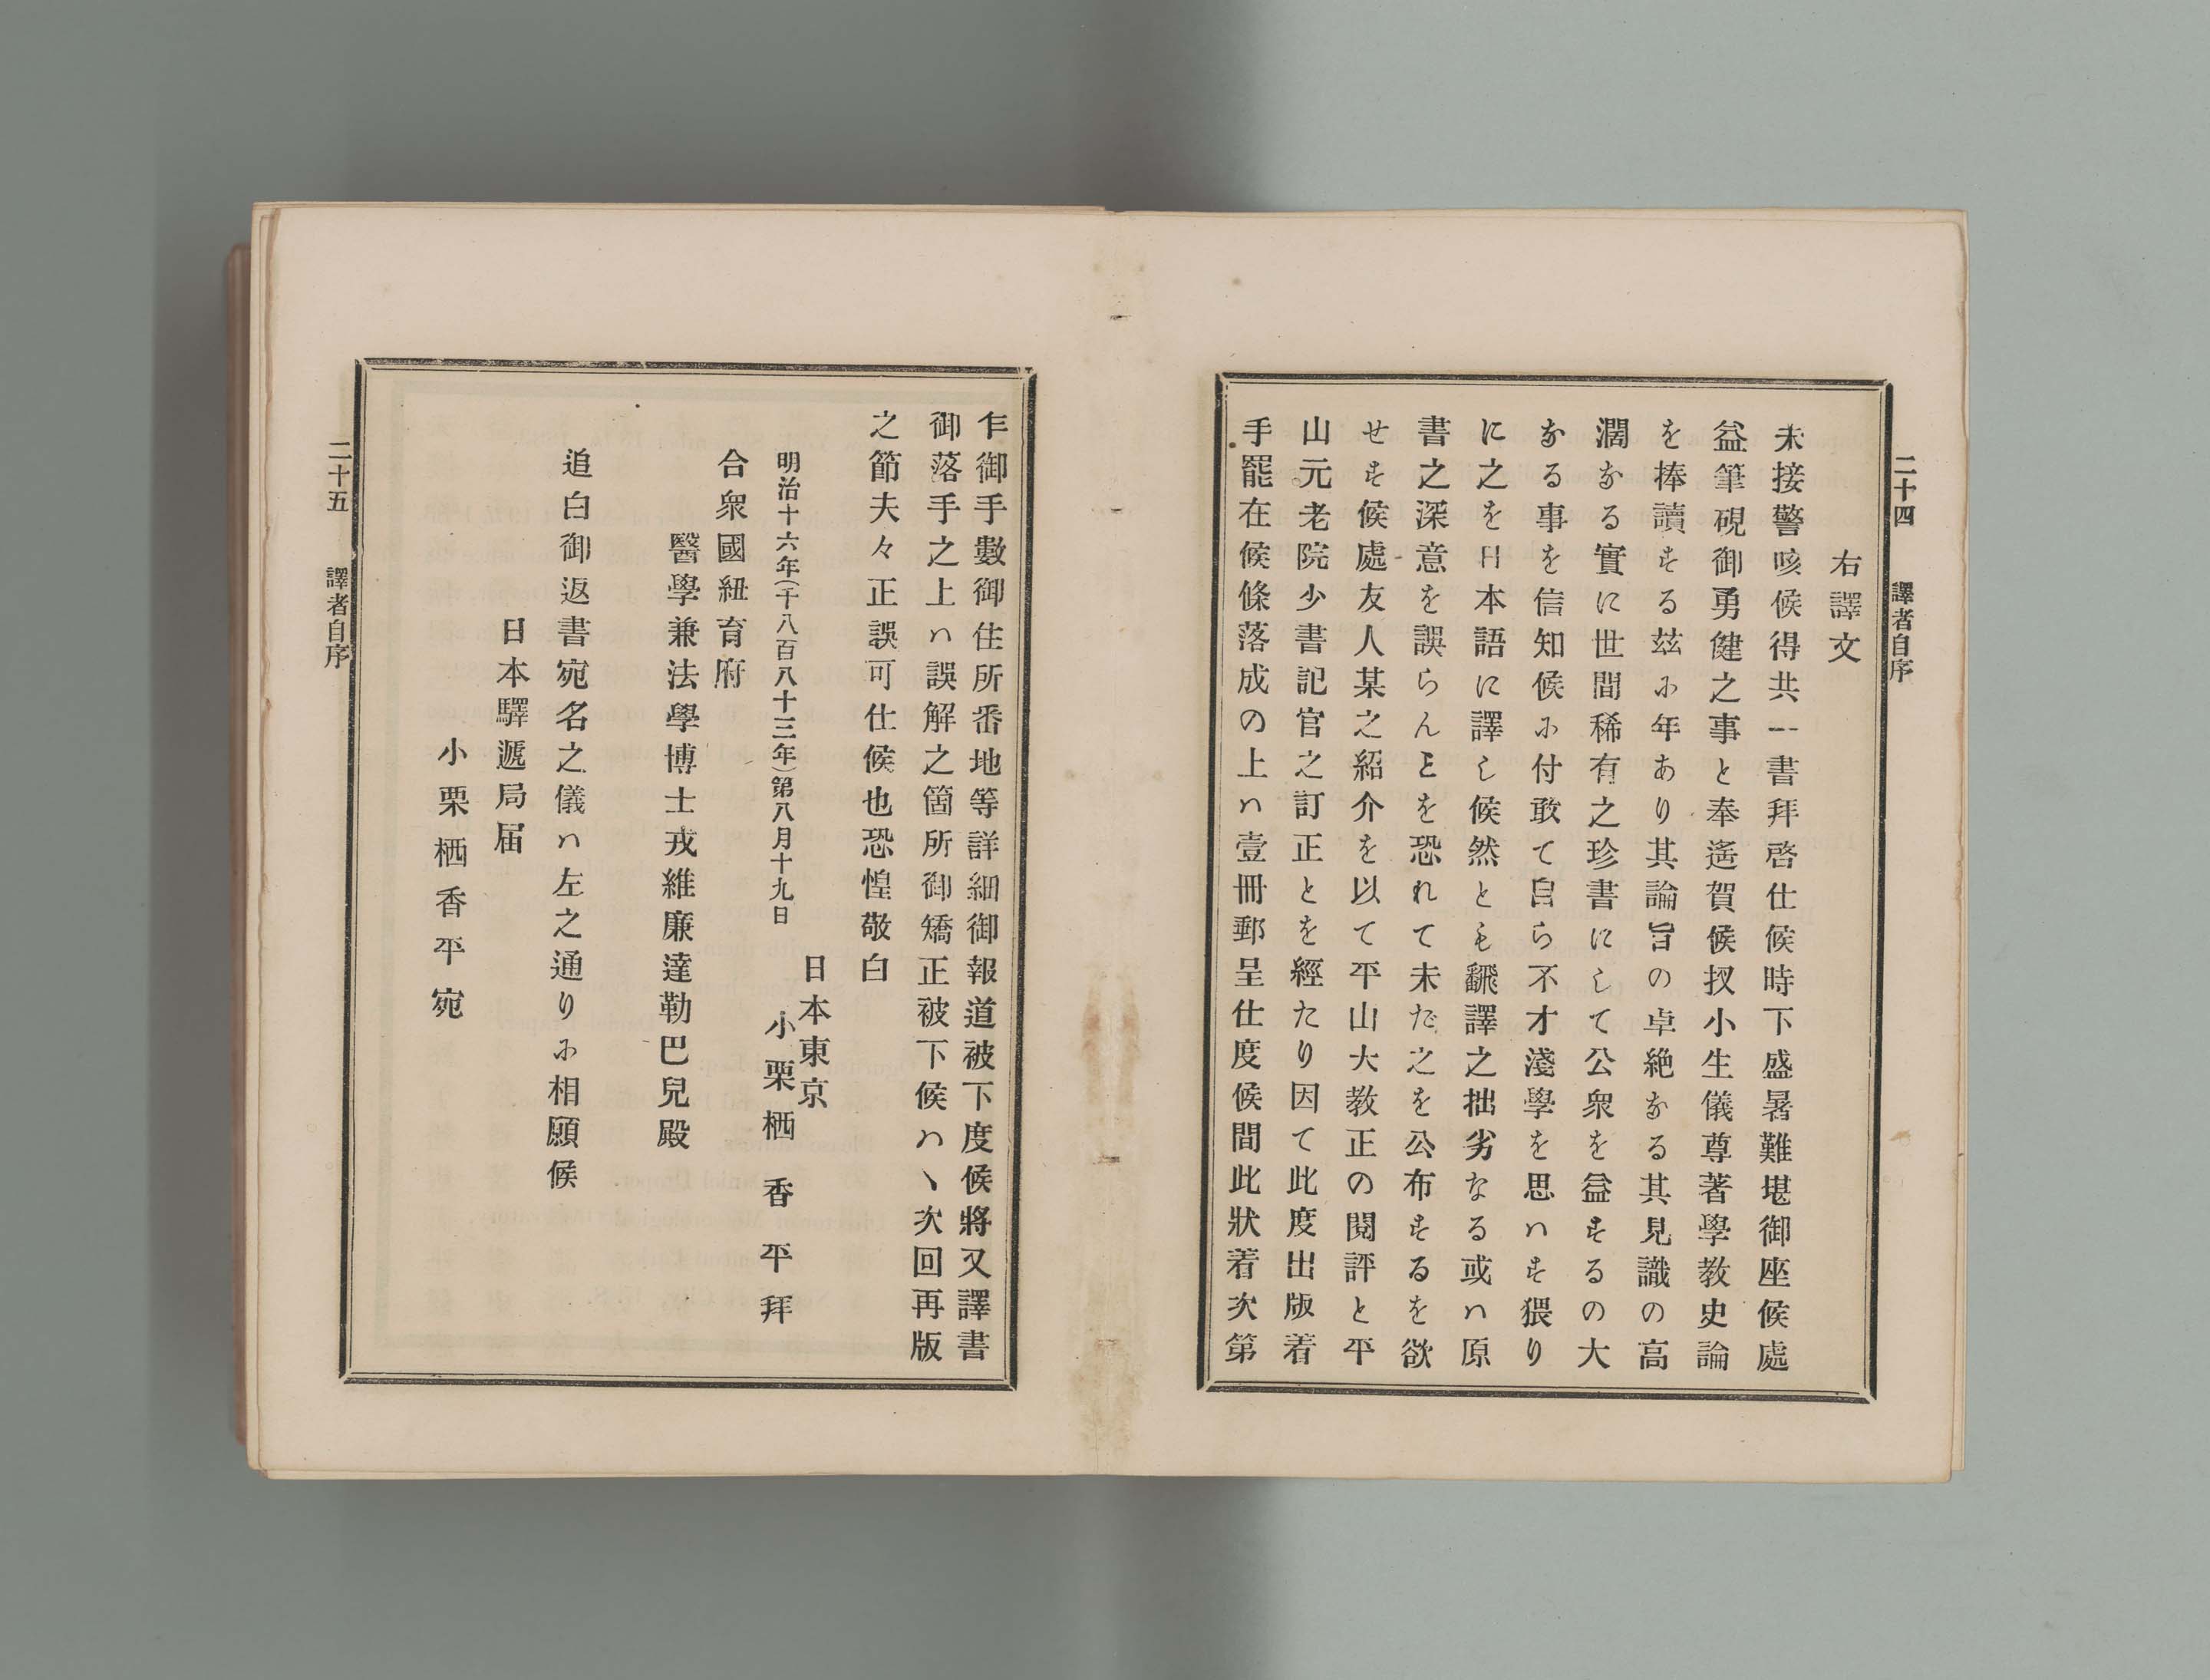 二十四 譯者自序
右譯文
未接警咳候得共一書拜啓仕候時下盛暑難堪御座候處
益筆硯御勇健之事と奉遙賀候扠小生儀尊著學教史論
を捧讀する玆に年あり其論旨の卓絶なる其見識の高
濶なる實に世間稀有之珍書にして公衆を益するの大
なる事を信知候に付敢て自ら不才淺學を思ハす猥り
に之を日本語に譯し候然とも飜譯之拙劣なる或ハ原
書之深意を誤らんことを恐れて未だ之を公布するを欲
せす候處友人某之紹介を以て平山大教正の閲評と平
山元老院少書記官之訂正とを經たり因て此度出版着
手罷在候條落成の上ハ壹冊郵呈仕度候間此狀着次第
乍御手數御住所番地等詳細御報道被下度候將又譯書
御落手之上ハ誤解之箇所御矯正被下候ハヽ次回再版
之節夫々正誤可仕候也恐惶敬白
日本東京
小栗栖香平拜
明治十六年(千八百八十三年)第八月十九日
合衆國紐育府
醫學兼法學博士戎維廉達勒巴兒殿
追白御返書宛名之儀ハ左之通りに相願候
日本驛遞局届
小栗栖香平宛
二十五 譯者自序